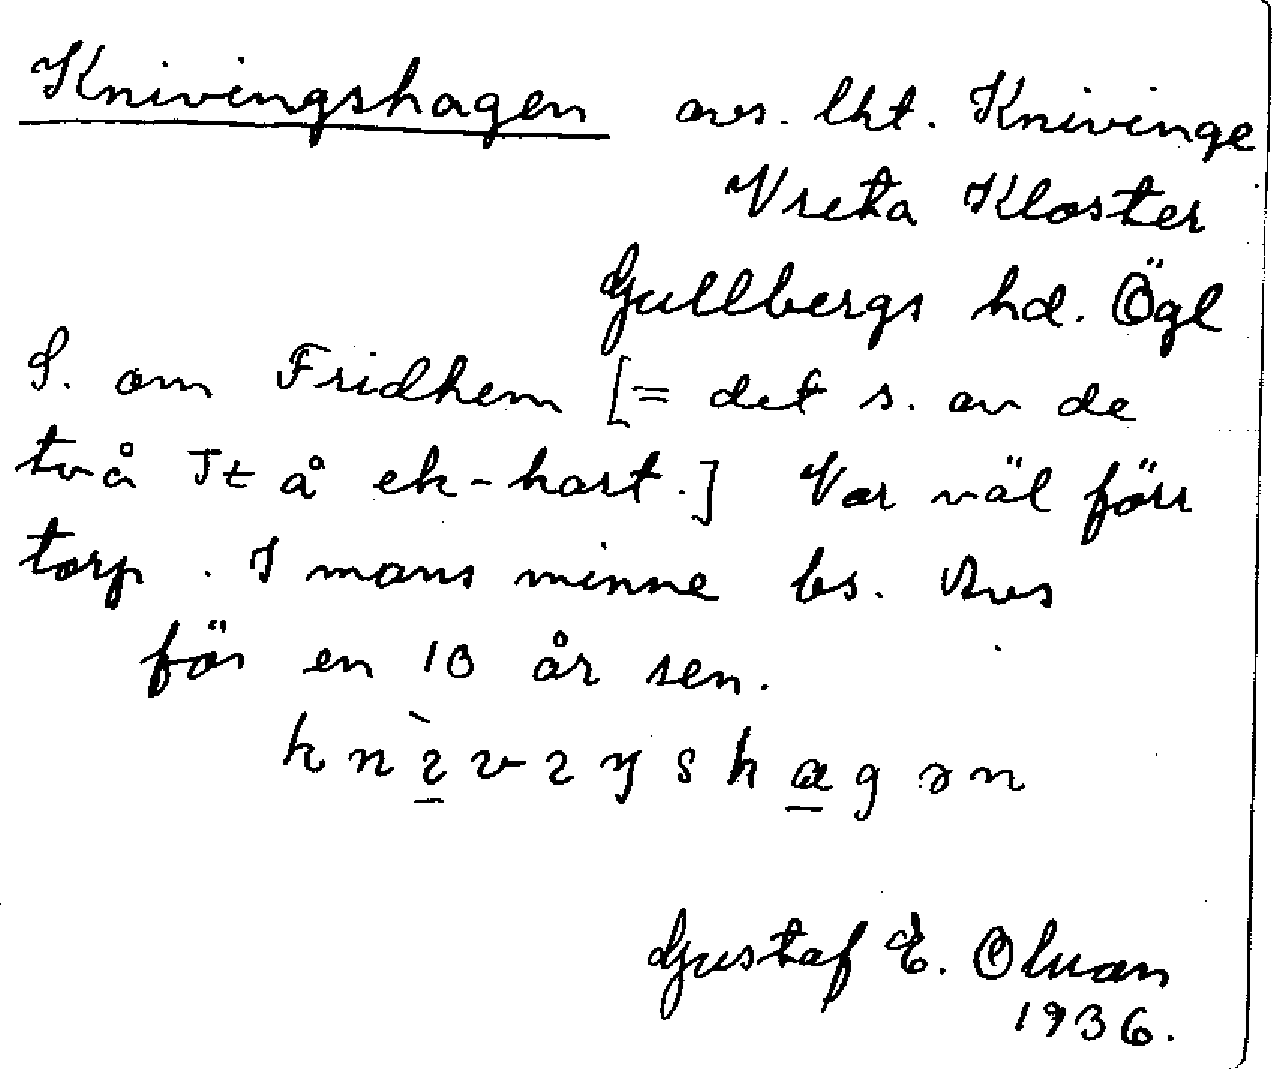 Knivingshagen avs. lht. Knivinge
Vreta Kloster
Gullbergs hd. Ögl
S. om Fridhem [= det s. av de
två Jt å ek-kart.] Var väl förr
torp. I mans minne bs. Avs
för en 10 år sen.
Gustaf E.
1936.